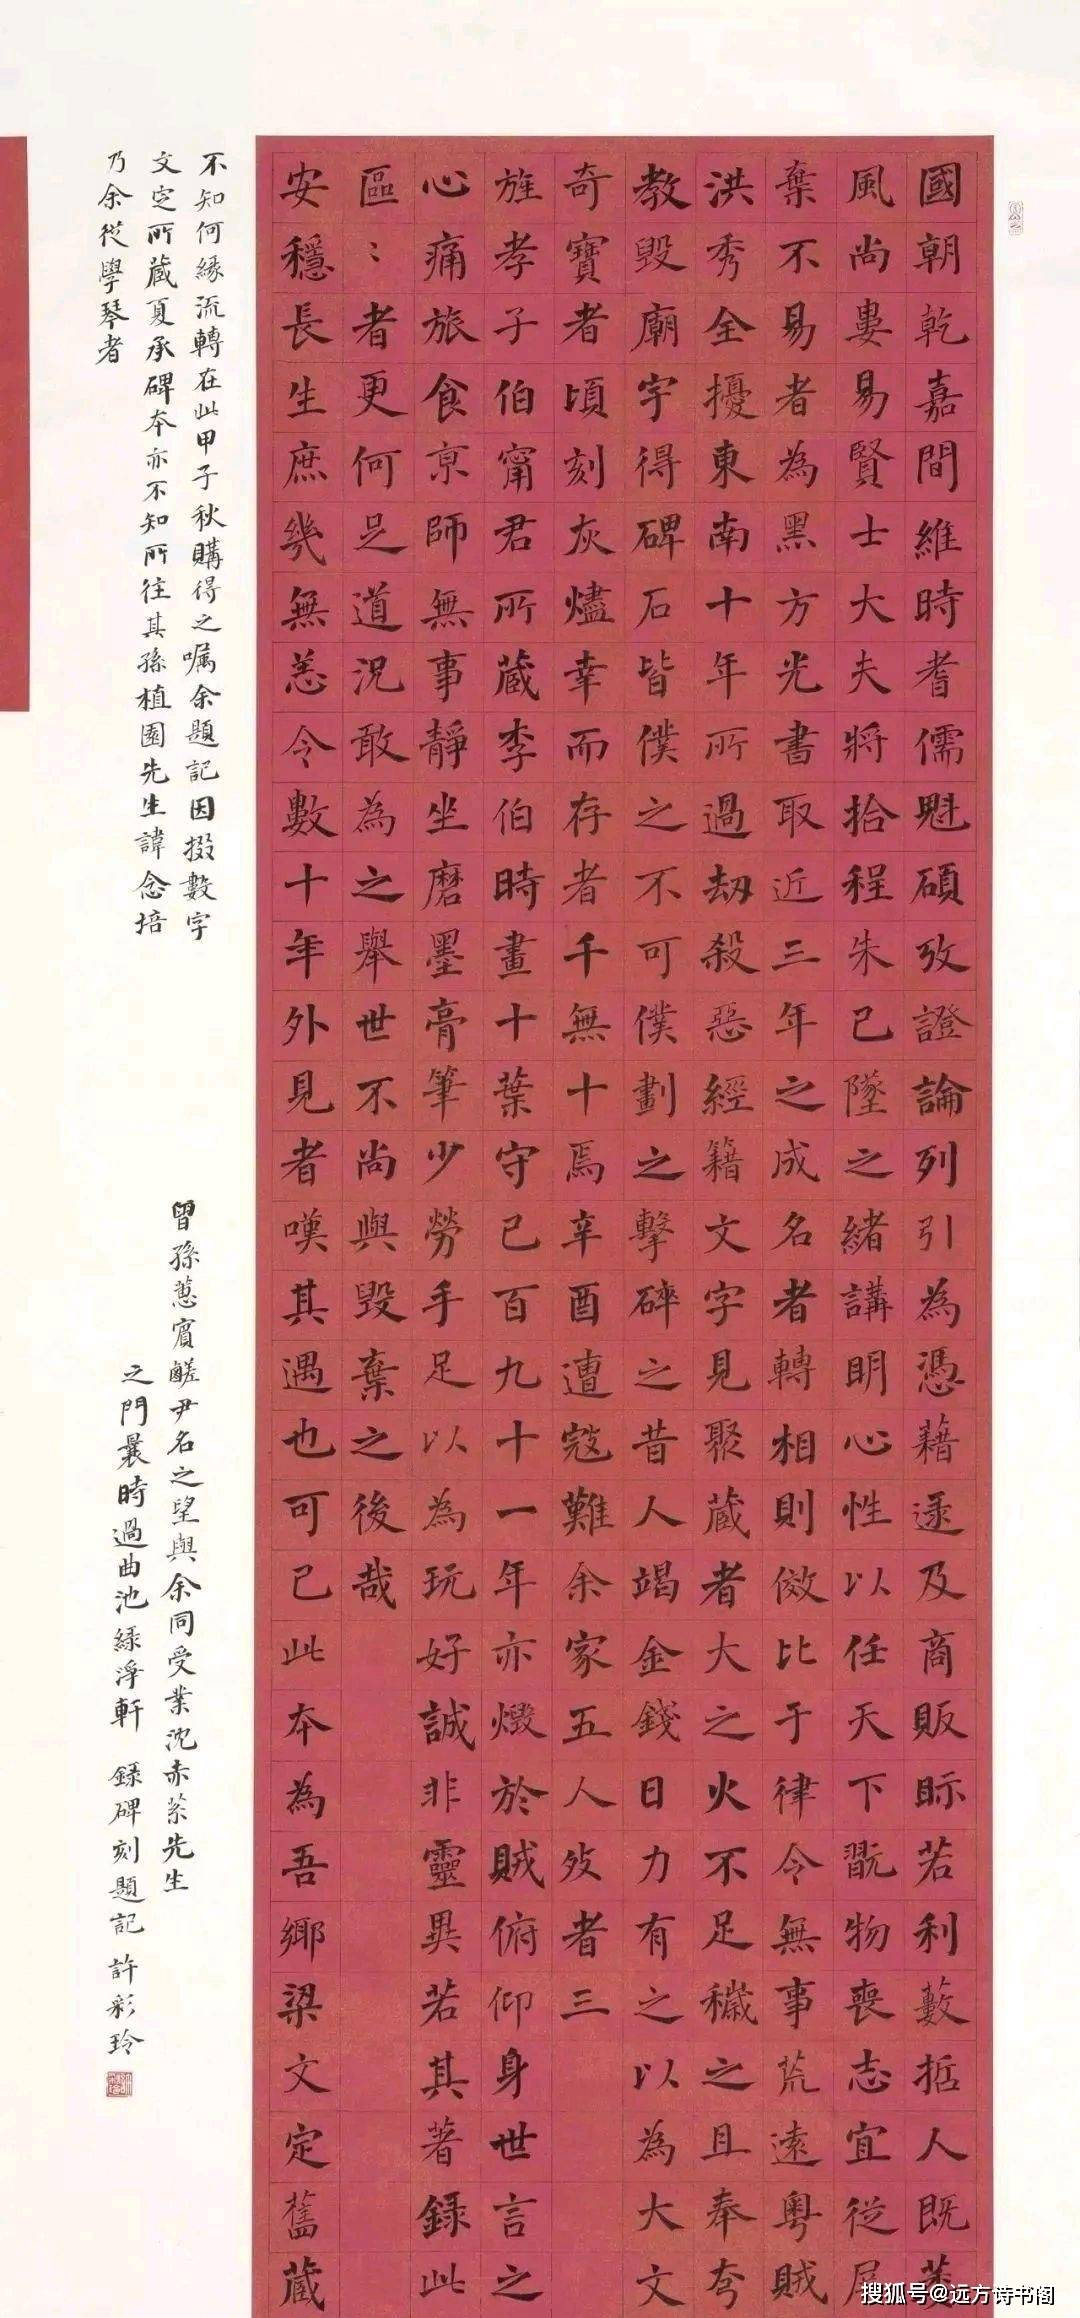 國朝乾嘉間維時耆儒魁碩攷證論列引為憑藉遂及商販眎若利藪哲人既萎
風尚婁易賢士大夫將拾程朱已墜之緒講明心性以任天下翫物喪志宜從屏
棄不易者為黑方光書取近三年之成名者轉相則傚比于律令無事荒遠粵賊
洪秀全擾東南十年所過劫殺惡經籍文字見聚藏者大之火不足穢之且奉夸
教毀廟宇得碑石皆僕之不可僕劃之擊碎之昔人竭金錢日力有之以為大文
奇寶者頃刻灰燼幸而存者千無十焉辛酉遭寇難余家五人歿者三
旌孝子伯甯君所藏李伯時畫十葉守已百九十一年亦燬於賊俯仰身世言之
心痛旅食京師無事靜坐磨墨膏筆少勞手足以為玩好誠非靈異若其著錄此
區〻者更何足道況敢為之舉世不尚與毀棄之後哉
安穩長生庶幾無恙令數十年外見者嘆其遇也可已此本為吾鄉梁文定舊藏
不知何緣流轉在此甲子秋購得之囑余題記因掇數字
文定所藏夏承碑本亦不知所往其孫植園先生諱念培
乃余從學琴者
曾孫蕙賓鹺尹名之望與余同受業沈赤荼先生
之門曩時過曲池綠淨軒 錄碑刻題記 許彩玲
搜狐号@远方诗书阁